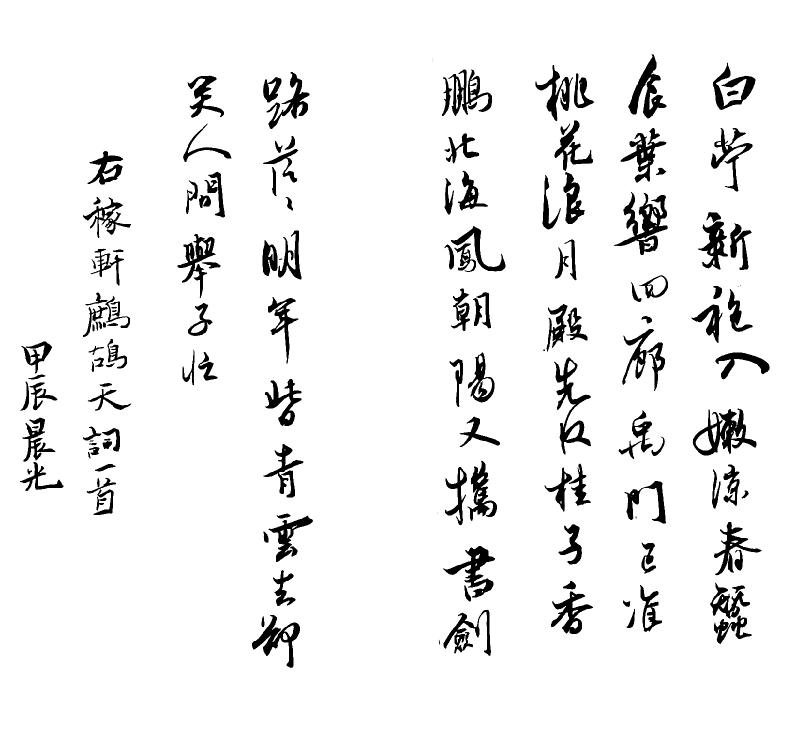 白苧新袍入嫩涼春蠶
食葉響回廊禹門已准
桃花浪月殿先收桂子香
鵬北海鳳朝陽又攜書劍
路茫〻明年此日青雲去卻
笑人間舉子忙
右稼軒鷓鴣天詞一首
甲辰晨光